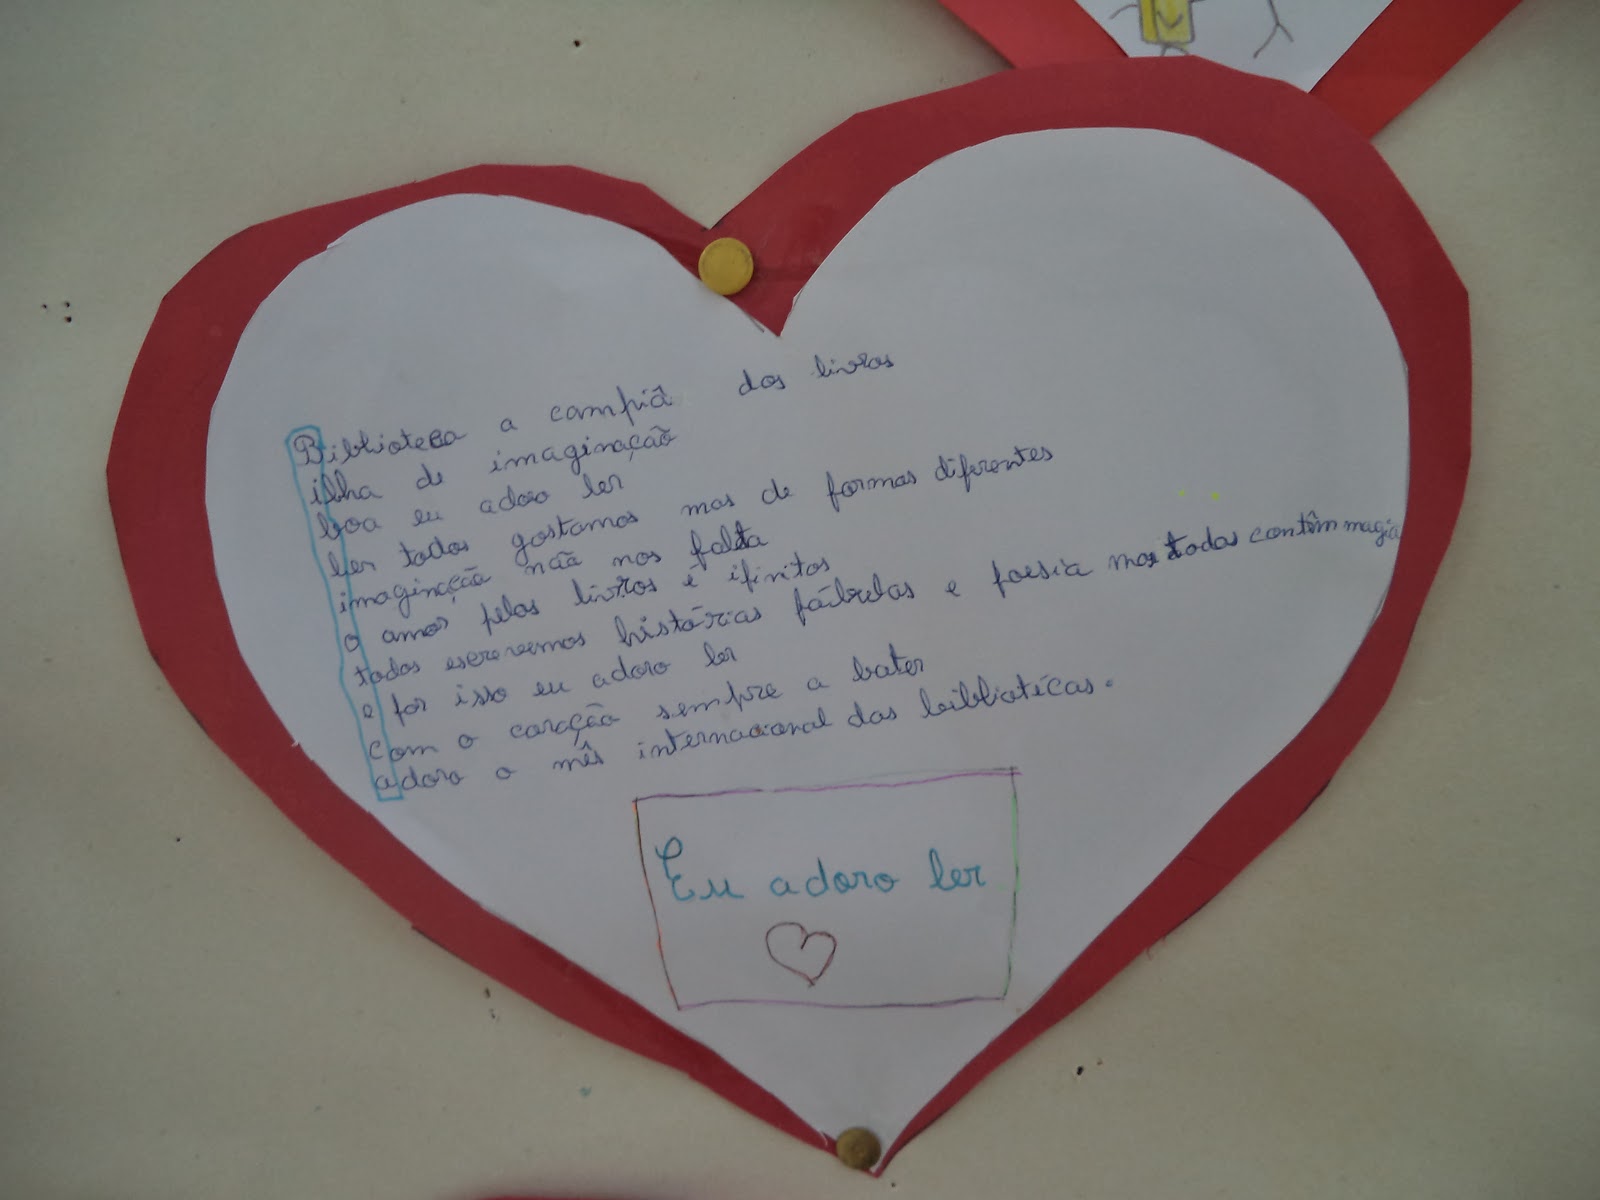 Biblioteca a campiã dos livros
ilha de imaginação
boa eu adoro ler
ler todos gostamos mas de formas diferentes
imaginação não nos falta
o amor pelos livros é ifinitos
todos escrevemos histórias fábulas e poesia mas todas contêm magia
e por isso eu adoro ler
com o coração sempre a bater
adoro o mês internacional das bibliotécas.
Eu adoro ler